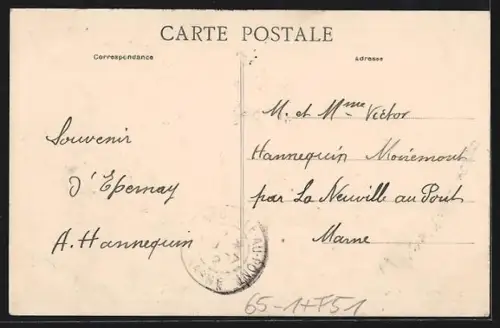 CARTE POSTALE
Correspondance
Adresse
Souvenir
d'Epernay
A. Hannequin
M. et Mme Victor
Hannequin Moiremont
par La Neuville au Pont
Marne
65-1+F51